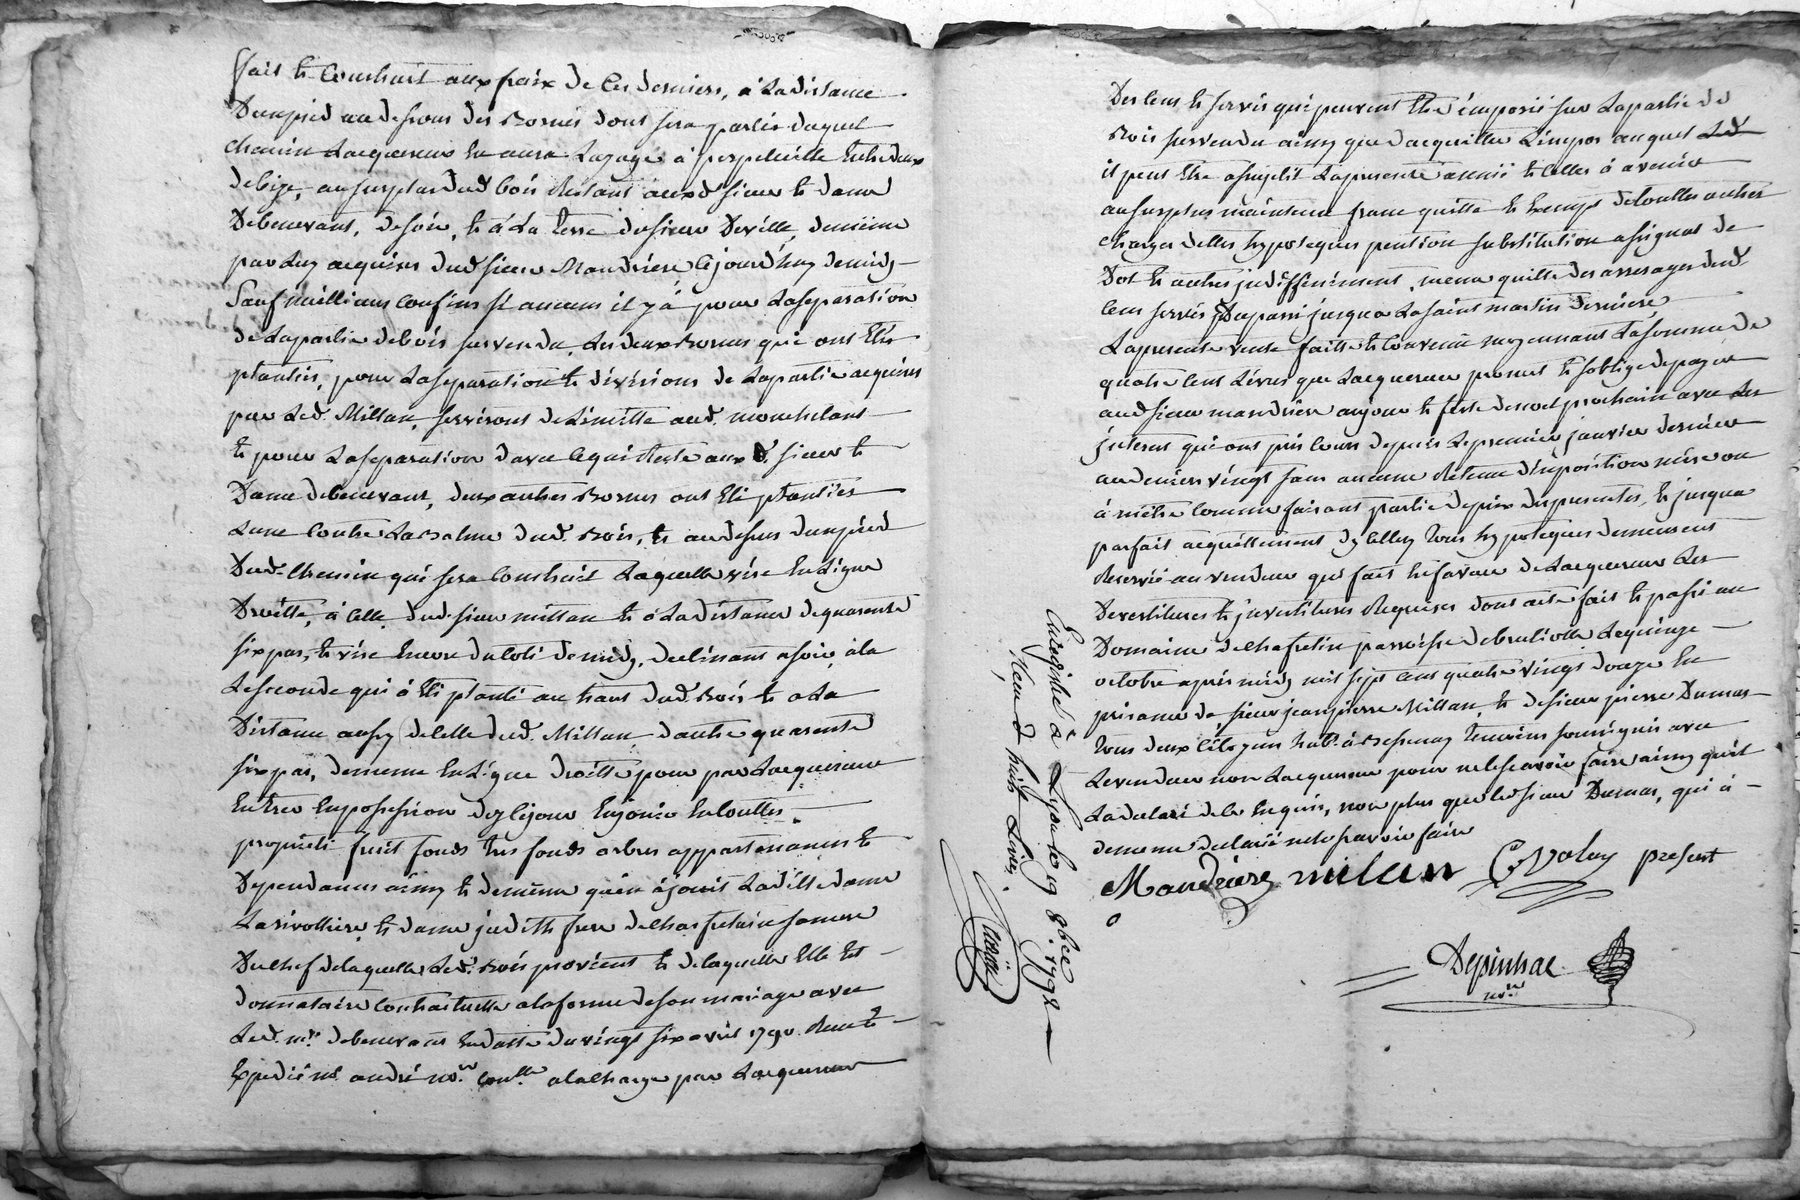 fait et Construit aux fraix de Ces derniers, à La distance
Dunpied au dessous des Bornes dont sera parlé, duquel
chemin Lacquereur en aura Lusage à perpetuitté
debize, au surplus dud bois Restant auxd sieur et dame
Debenevant, desoir, et à La terre dusieur Deville, demême
par Luy acquise dud sieur Mandriere, Cejourdhuy demidy
Sauf meilleurs Confins si aucuns il y à pour Laseparation
de Lapartie debois survendu, Lesdeux Bornes qui ont Etés
plantées, pour Laseparation et divisions de Lapartie acquise
par Led. Millan, serviront de Limitte aud.
et pour Laseparation davec cequi Reste aux d. sieur et
Dame debenevant, deux autres Bornes ont Eté plantées
Lune Contre La Balme dud. Bois, et audessus dunpied
Dud. Chemin qui sera Construit Laquelle vise En Ligne
Droitte, à Celle dud sieur millan et à La distance dequarente
six pas, et vise Encore du Coté demidy, declinant asoir, à la
Seconde qui à Eté planté au haut dud. Bois et a La
Distance aussy de Celle dud. Millan, dautre quarente
six pas, dememe En Ligne droitte pour par Lacquereur
Entrer En possession dezcejour Enjouir En touttes
proprieté fruit fonds tres fonds arbres appartenances et
Dependances ainsy et dememe quen à jouit Laditte dame
Larivolliere, et dame judith frere
Duchef delaquelle Led. Bois provient et delaquelle Elle Est
donnataire Contractuelle alaforme deson mariage avec
Led. mr. debenevant Endatte du vingt six avril 1790. Recu et
Expedié me. andré nore. alacharge par Lacquereur
Des Cens et servis qui peuvent Etre imposés sur Lapartie de
Bois survendu ainsy que dacquitter Limpos auquel Led
il peut Etre assujetit Lapresente année et Celles à avenir
ausurplus maintenu franc quitte et Exempt detouttes autres
charges dettes hypoteques pention substitution assignat de
Dot et autres indiffiniment, meme quitte des arrerages dud
Cens servis Dupassé jusqua Lasaint martin derniere
Lapresente vente faitte et Convenue moyennant Lasomme de
quatre Cent Livres que Lacquereur promet et sobligedepayer
aud sieur mandriere aujour et fete denoel prochain avec Les
interets qui ont pris Cours depuis Lepremier janvier dernier
audenier vingt sans aucune Retenue dimposition mise ou
à mettre Comme faisant partie duprix des presentes, et jusqua
parfait acquittement dy Celluy tous hypoteques demeurent
Reservés au vendeur qui fait En faveur de Lacquereur Les
Devestitures et investitures Requises dont acte fait et passé au
Domaine parroisse Lequinze
octobre après midy mil sept Cent quatre vingt douze En
presence de sieur jeanpierre Millan, et de sieur pierre Dumas
tous deux Citoyens habt. à Bessenay temoins soussignés avec
Levendeur non Lacquereur pour nelescavoir faire ainsy quil
La declaré dece Enquis, non plus que led sieur Dumas, qui à
dememe declaré nelescavoir faire
Mandriere milan C. Volay present
Depinhac
nore.
Enregistré à Lyon le 19 8bre. 1792
Reçu huit Livres.